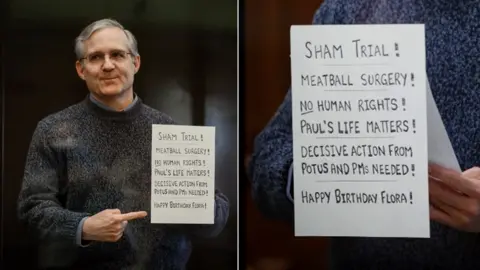 SHAM TRIAL!
MEATBALL SURGERY!
NO HUMAN RIGHTS!
PAUL'S LIFE MATTERS!
DECISIVE ACTION FROM
POTUS AND PMS NEEDED!
HAPPY BIRTHDAY FLORA!
SHAM TRIAL!
MEATBALL SURGERY!
NO HUMAN RIGHTS!
PAUL'S LIFE MATTERS!
DECISIVE ACTION FROM
POTUS AND PMs NEEDED!
HAPPY BIRTHDAY FLORA!